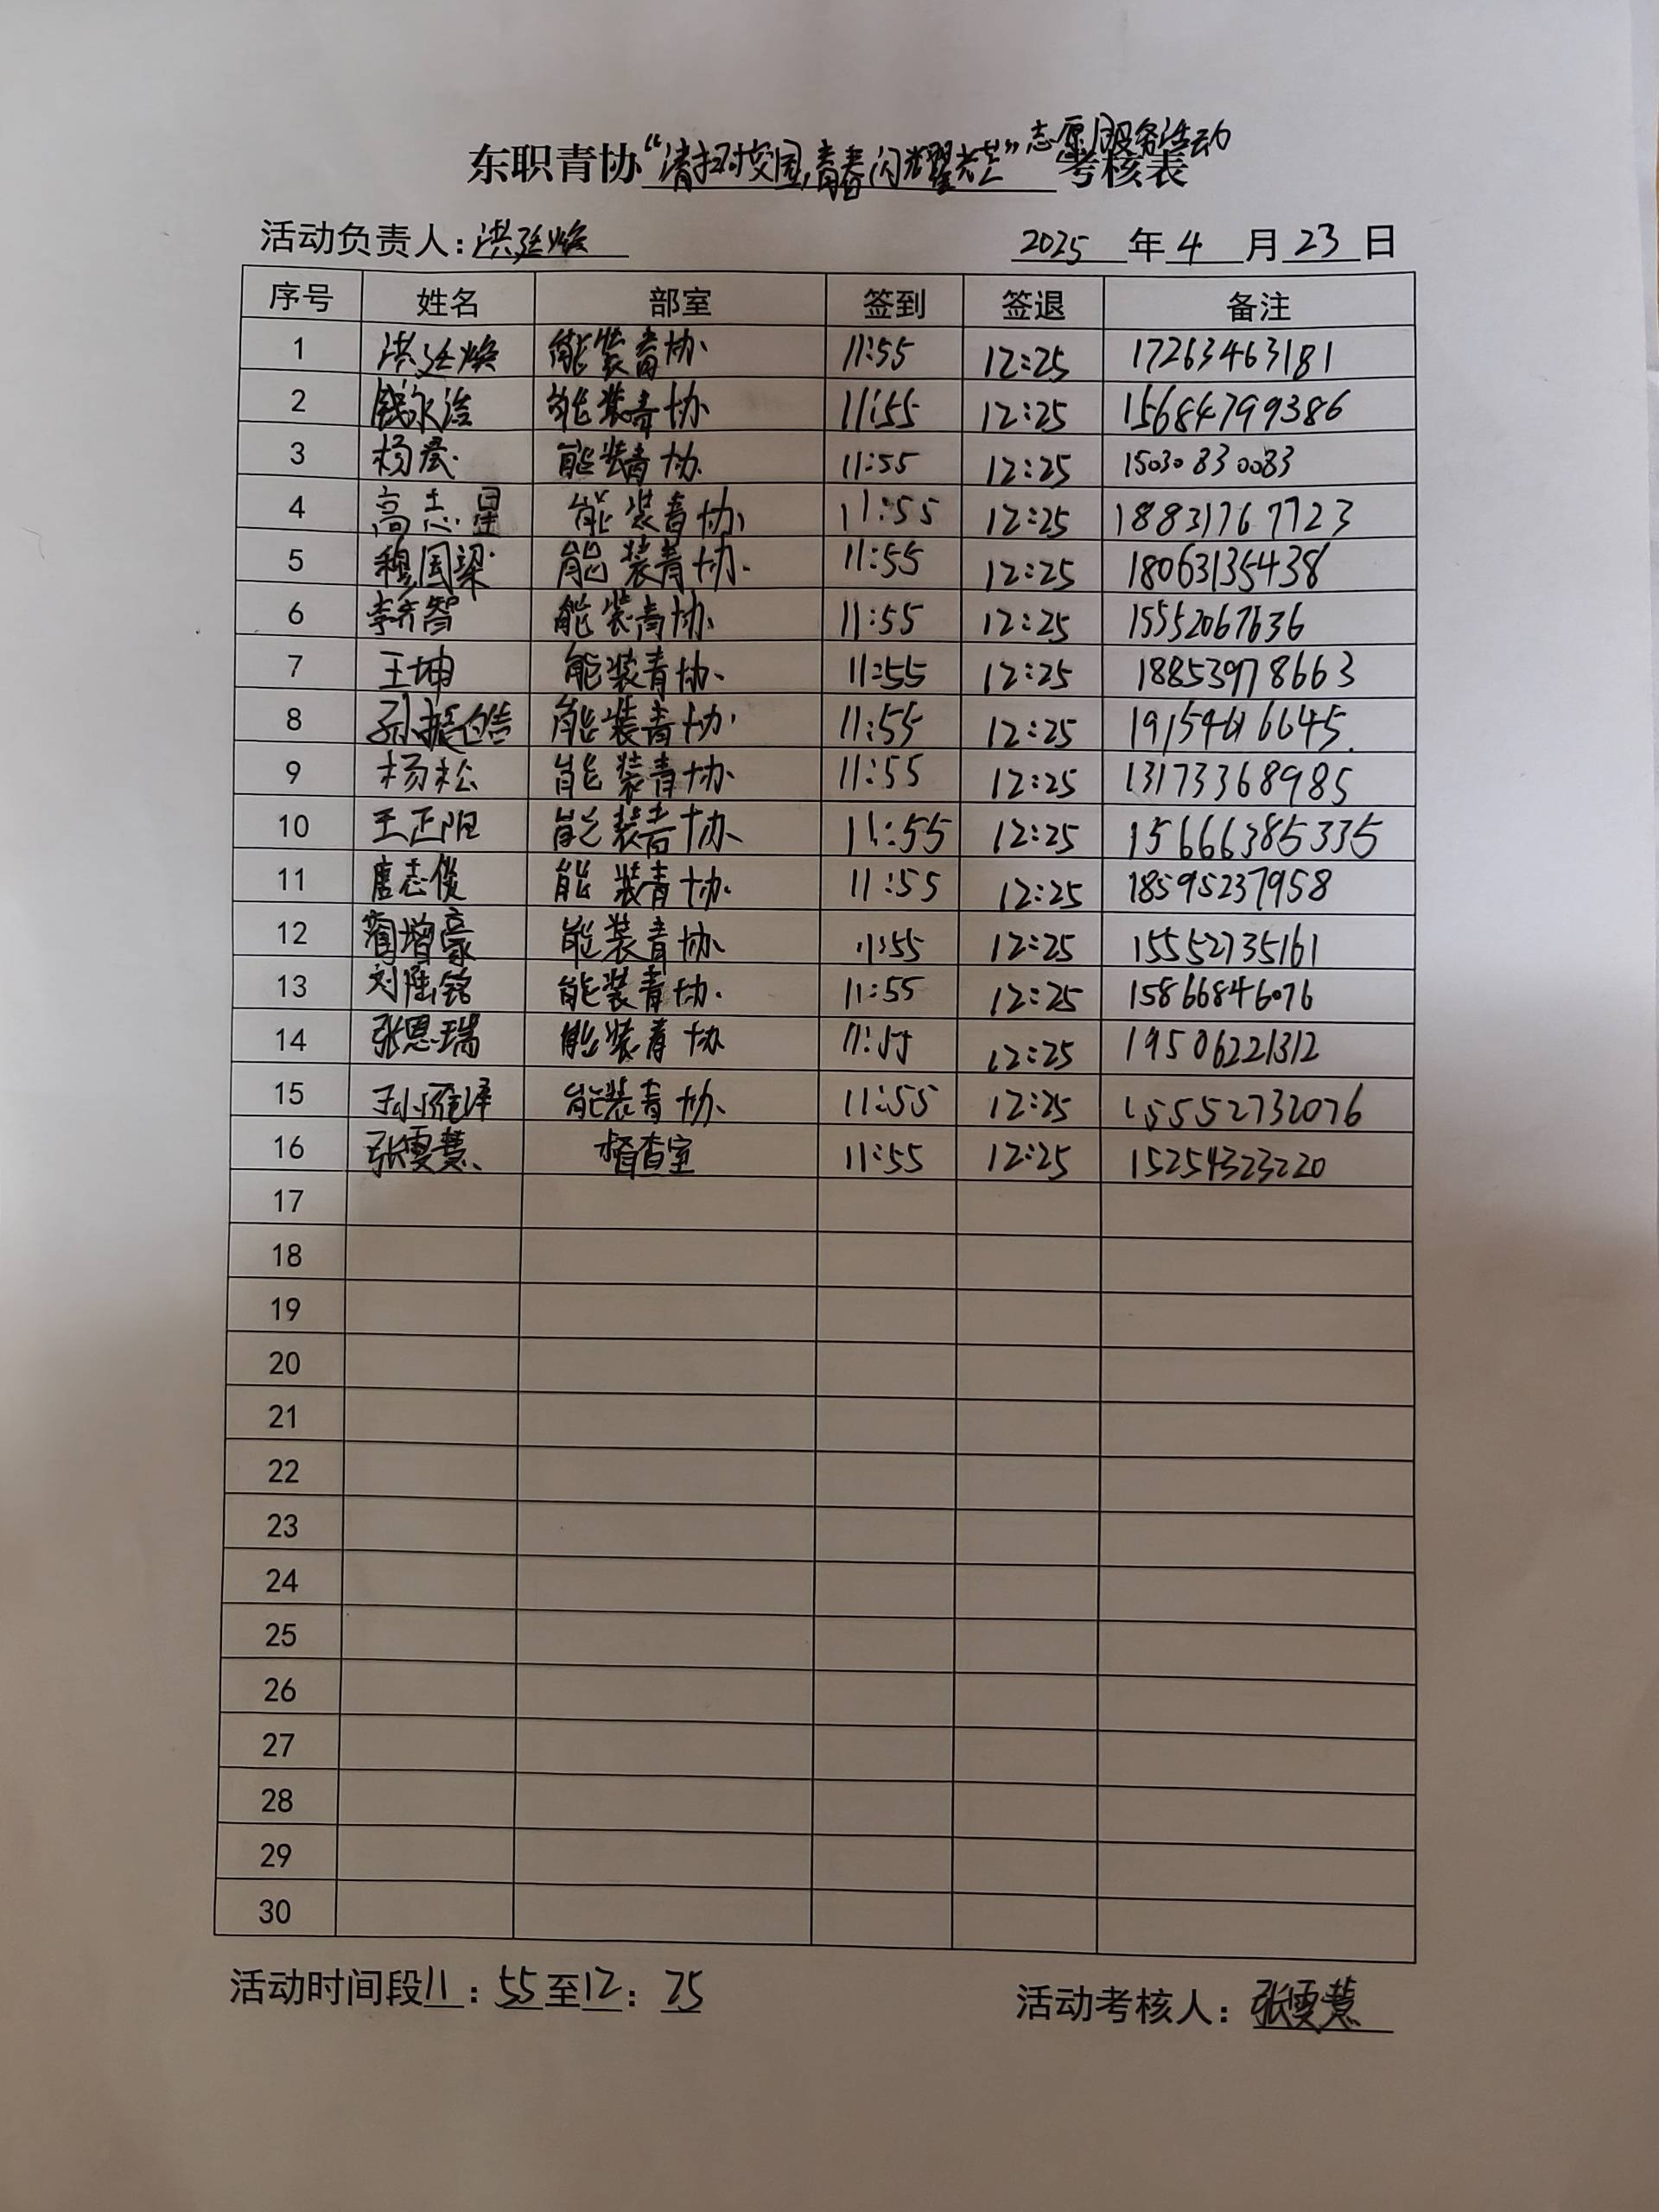 志愿服务活动
东职青协“清扫校园,青春闪耀光芒”考核表
活动负责人:洪延焕 2025年4月23日
序号 姓名 部室 签到 签退 备注
1 洪延焕 能装青协 11:55 12:25 17263463181
2 钱永治 能装青协 11:55 12:25 15684799386
3 杨晨 能装青协 11:55 12:25 15030830083
4 高志星 能装青协 11:55 12:25 18831767723
5 穆国梁 能装青协 11:55 12:25 18063135438
6 李齐智 能装青协 11:55 12:25 15552067636
7 王坤 能装青协 11:55 12:25 18853978663
8 孙振皓 能装青协 11:55 12:25
9 杨松 能装青协 11:55 12:25 13173368985
10 王正阳 能装青协 11:55 12:25 15666385335
11 唐志俊 能装青协 11:55 12:25 18595237958
12 增豪 能装青协 11:55 12:25 15552735161
13 刘陆铭 能装青协 11:55 12:25 15866846076
14 张恩瑞 能装青协 11:55 12:25 19506221312
15 能装青协 11:55 12:25 15552732076
16 张雯慧 督查室 11:55 12:25 15254323220
17
18
19
20
21
22
23
24
25
26
27
28
29
30
活动时间段11:55至12:25 活动考核人:张雯慧